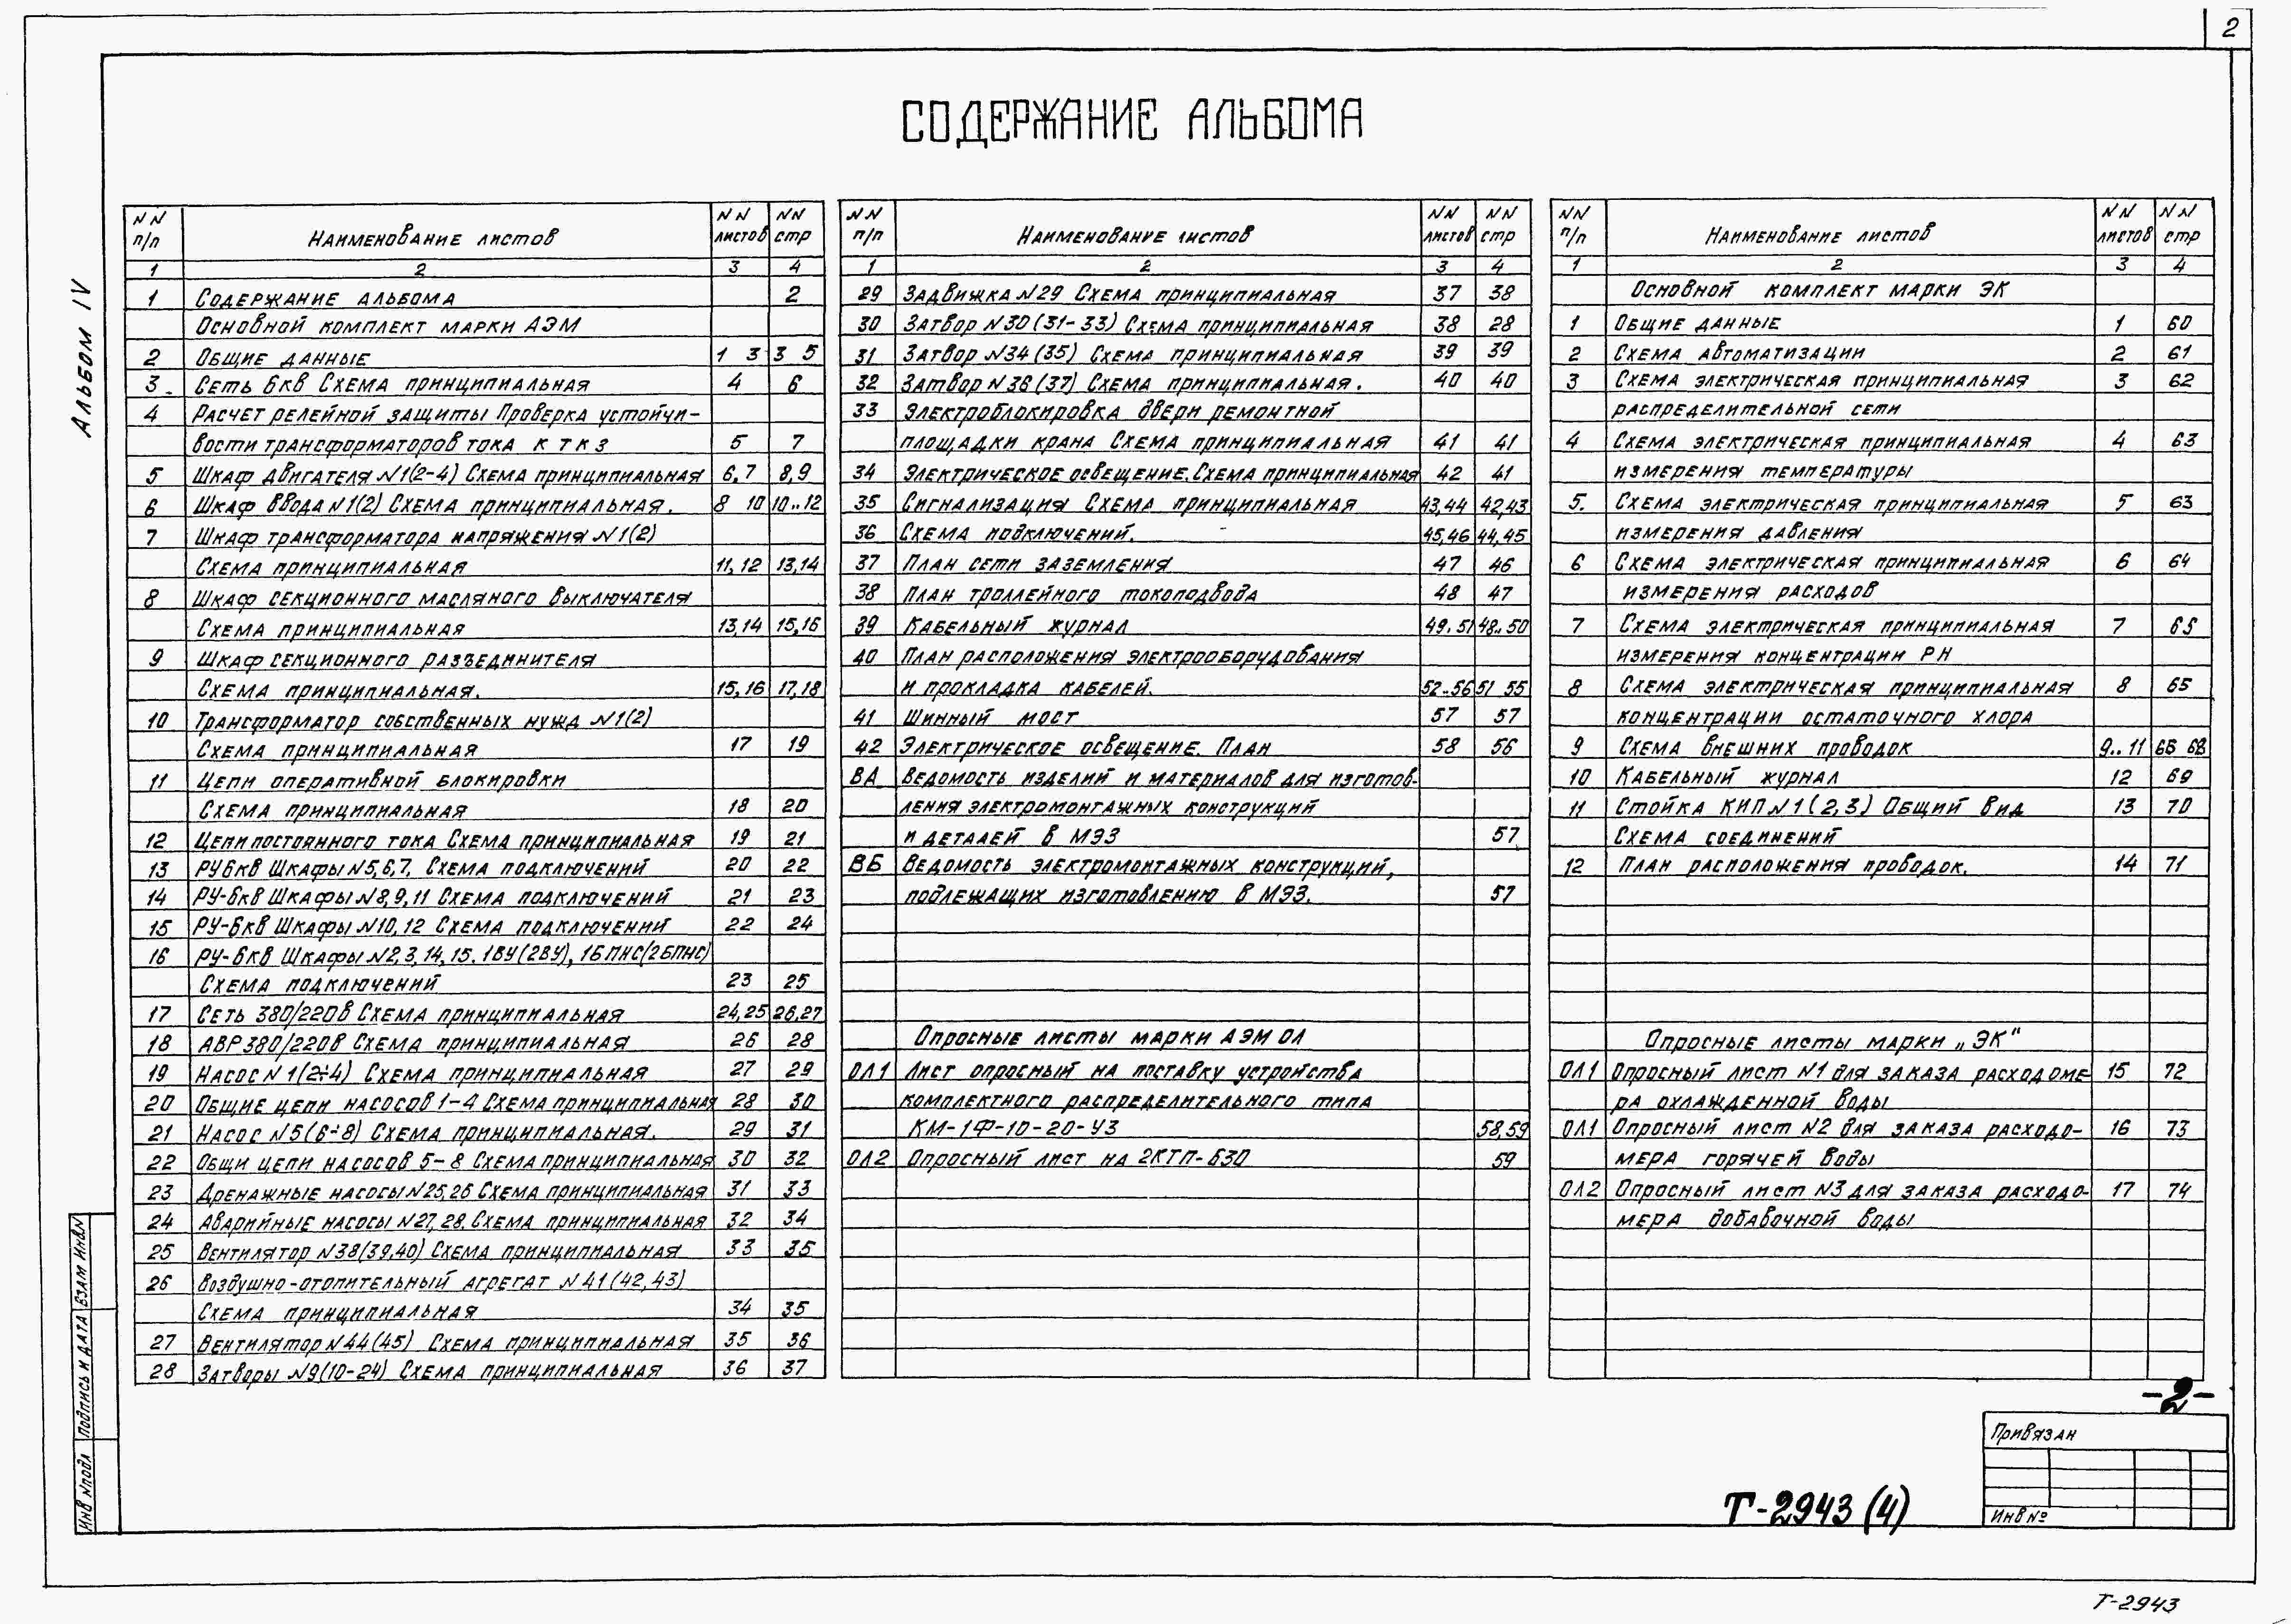 2
СОДЕРЖАНИЕ АЛЬБОМА
Альбом IV
NN п/п Наименование листов NN листов NN стр
1 2 3 4
1 Содержание альбома 2
Основной комплект марки АЭМ
2 Общие данные 1 3 3 5
3 Сеть 6кв Схема принципиальная 4 6
4 Расчет релейной защиты Проверка устойчи-
вости трансформаторов тока к т к з 5 7
5 Шкаф двигателя N1(2-4) Схема принципиальная 6,7 8,9
6 Шкаф ввода N1(2) Схема принципиальная. 8 10 10..12
7 Шкаф трансформатора напряжения N1(2)
Схема принципиальная 11,12 13,14
8 Шкаф секционного масляного выключателя
Схема принципиальная 13,14 15,16
9 Шкаф секционного разъединителя
Схема принципиальная. 15,16 17,18
10 Трансформатор собственных нужд N1(2)
Схема принципиальная 17 19
11 Цепи оперативной блокировки
Схема принципиальная 18 20
12 Цепи постоянного тока Схема принципиальная 19 21
13 РУ6кв Шкафы N5,6,7. Схема подключений 20 22
14 РУ-6кв Шкафы N8,9,11 Схема подключений 21 23
15 РУ-6кв Шкафы N10,12 Схема подключений 22 24
16 РУ-6кв Шкафы N2,3,14,15. 1ВУ(2ВУ), 1БПНС(2БПНС)
Схема подключений 23 25
17 Сеть 380/220в Схема принципиальная 24,25 26,27
18 АВР 380/220в Схема принципиальная 26 28
19 Насос N1(2÷4) Схема принципиальная 27 29
20 Общие цепи насосов 1-4 Схема принципиальная 28 30
21 Насос N5(6÷8) Схема принципиальная. 29 31
22 Общи цепи насосов 5-8 Схема принципиальная 30 32
23 Дренажные насосы N25,26 Схема принципиальная 31 33
24 Аварийные насосы N27,28. Схема принципиальная 32 34
25 Вентилятор N38(39,40) Схема принципиальная 33 35
26 Воздушно-отопительный агрегат N41(42,43)
Схема принципиальная 34 35
27 Вентилятор N44(45) Схема принципиальная 35 36
28 Затворы N9(10-24) Схема принципиальная 36 37
NN п/п Наименование листов NN листов NN стр
1 2 3 4
29 Задвижка N29 Схема принципиальная 37 38
30 Затвор N30(31-33) Схема принципиальная 38 28
31 Затвор N34(35) Схема принципиальная 39 39
32 Затвор N36(37) Схема принципиальная. 40 40
33 Электроблокировка двери ремонтной
площадки крана Схема принципиальная 41 41
34 Электрическое освещение. Схема принципиальная 42 41
35 Сигнализация Схема принципиальная 43,44 42,43
36 Схема подключений. 45,46 44,45
37 План сети заземления 47 46
38 План троллейного токоподвода 48 47
39 Кабельный журнал 49.51 48..50
40 План расположения электрооборудования
и прокладка кабелей. 52..56 51 55
41 Шинный мост 57 57
42 Электрическое освещение. План 58 56
ВА Ведомость изделий и материалов для изготов-
ления электромонтажных конструкций
и деталей в МЭЗ 57
ВБ Ведомость электромонтажных конструкций,
подлежащих изготовлению в МЭЗ. 57
Опросные листы марки АЭМ ОЛ
ОЛ1 Лист опросный на поставку устройства
комплектного распределительного типа
КМ-1Ф-10-20-У3 58,59
ОЛ2 Опросный лист на 2КТП-630 59
NN п/п Наименование листов NN листов NN стр
1 2 3 4
Основной комплект марки ЭК
1 Общие данные 1 60
2 Схема автоматизации 2 61
3 Схема электрическая принципиальная 3 62
распределительной сети
4 Схема электрическая принципиальная 4 63
измерения температуры
5. Схема электрическая принципиальная 5 63
измерения давления
6 Схема электрическая принципиальная 6 64
измерения расходов
7 Схема электрическая принципиальная 7 65
измерения концентрации PH
8 Схема электрическая принципиальная 8 65
концентрации остаточного хлора
9 Схема внешних проводок 9..11 66 68
10 Кабельный журнал 12 69
11 Стойка КИП N1(2,3) Общий вид 13 70
Схема соединений
12 План расположения проводок. 14 71
Опросные листы марки „ЭК"
ОЛ1 Опросный лист N1 для заказа расходоме 15 72
ра охлажденной воды
ОЛ1 Опросный лист N2 для заказа расходо- 16 73
мера горячей воды
ОЛ2 Опросный лист N3 для заказа расходо- 17 74
мера добавочной воды
-2-
Привязан
Инв №
Т-2943 (4)
Взам инв N
Подпись и дата
Инв N подл
Т-2943